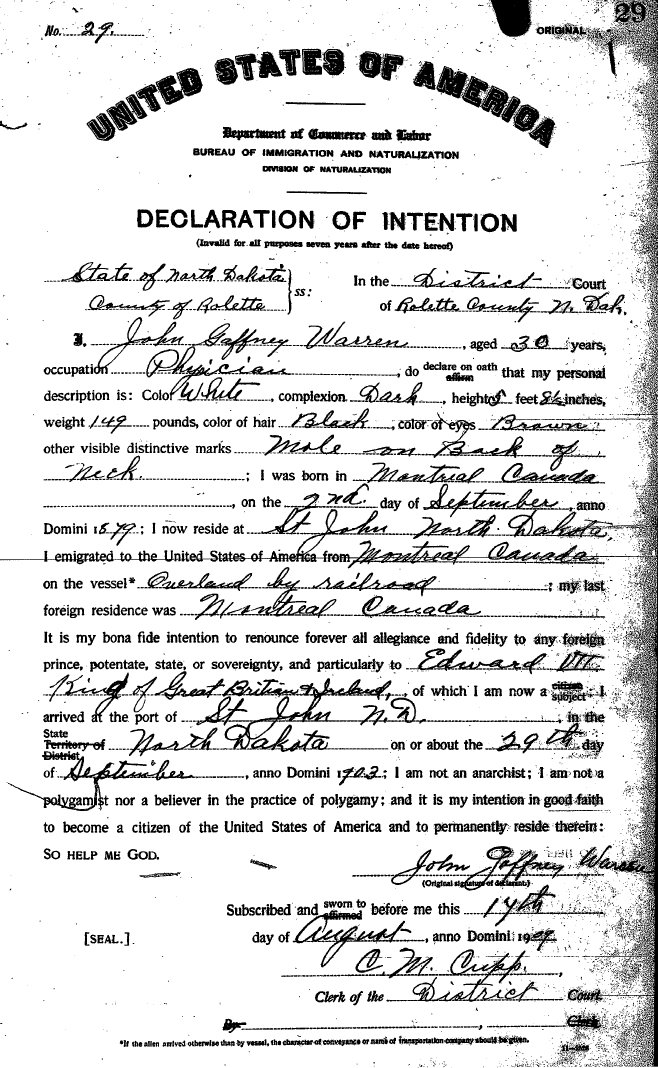 29
No. 29.
ORIGINAL
UNITED STATES OF AMERICA
Department of Commerce and Labor
BUREAU OF IMMIGRATION AND NATURALIZATION
DIVISION OF NATURALIZATION
DECLARATION OF INTENTION
(Invalid for all purposes seven years after the date hereof)
State of North Dakota } ss: In the District Court
County of Rolette of Rolette County N. Dak.
I, John Gaffney Warren, aged 30 years,
occupation Physician, do declare on oath affirm that my personal
description is: Color White, complexion Dark, height 5 feet 8½ inches,
weight 149 pounds, color of hair Black, color of eyes Brown
other visible distinctive marks Mole on Back of
Neck.; I was born in Montreal Canada
, on the 2nd. day of September, anno
Domini 1879; I now reside at St John North Dakota,
I emigrated to the United States of America from Montreal Canada
on the vessel* Overland by railroad; my last
foreign residence was Montreal Canada
It is my bona fide intention to renounce forever all allegiance and fidelity to any foreign
prince, potentate, state, or sovereignty, and particularly to Edward VII
King of Great Britian & Ireland, of which I am now a citizen subject; I
arrived at the port of St John N.D., in the
State Territory of District North Dakota on or about the 29th day
of September, anno Domini 1903; I am not an anarchist; I am not a
polygamist nor a believer in the practice of polygamy; and it is my intention in good faith
to become a citizen of the United States of America and to permanently reside therein:
SO HELP ME GOD.
John Gaffney Warren
(Original signature of declarant.)
Subscribed and sworn to affirmed before me this 17th
[SEAL.] day of August, anno Domini 1909
C. M. Cupp.,
Clerk of the District Court.
By , Clerk
*If the alien arrived otherwise than by vessel, the character of conveyance or name of transportation company should be given.